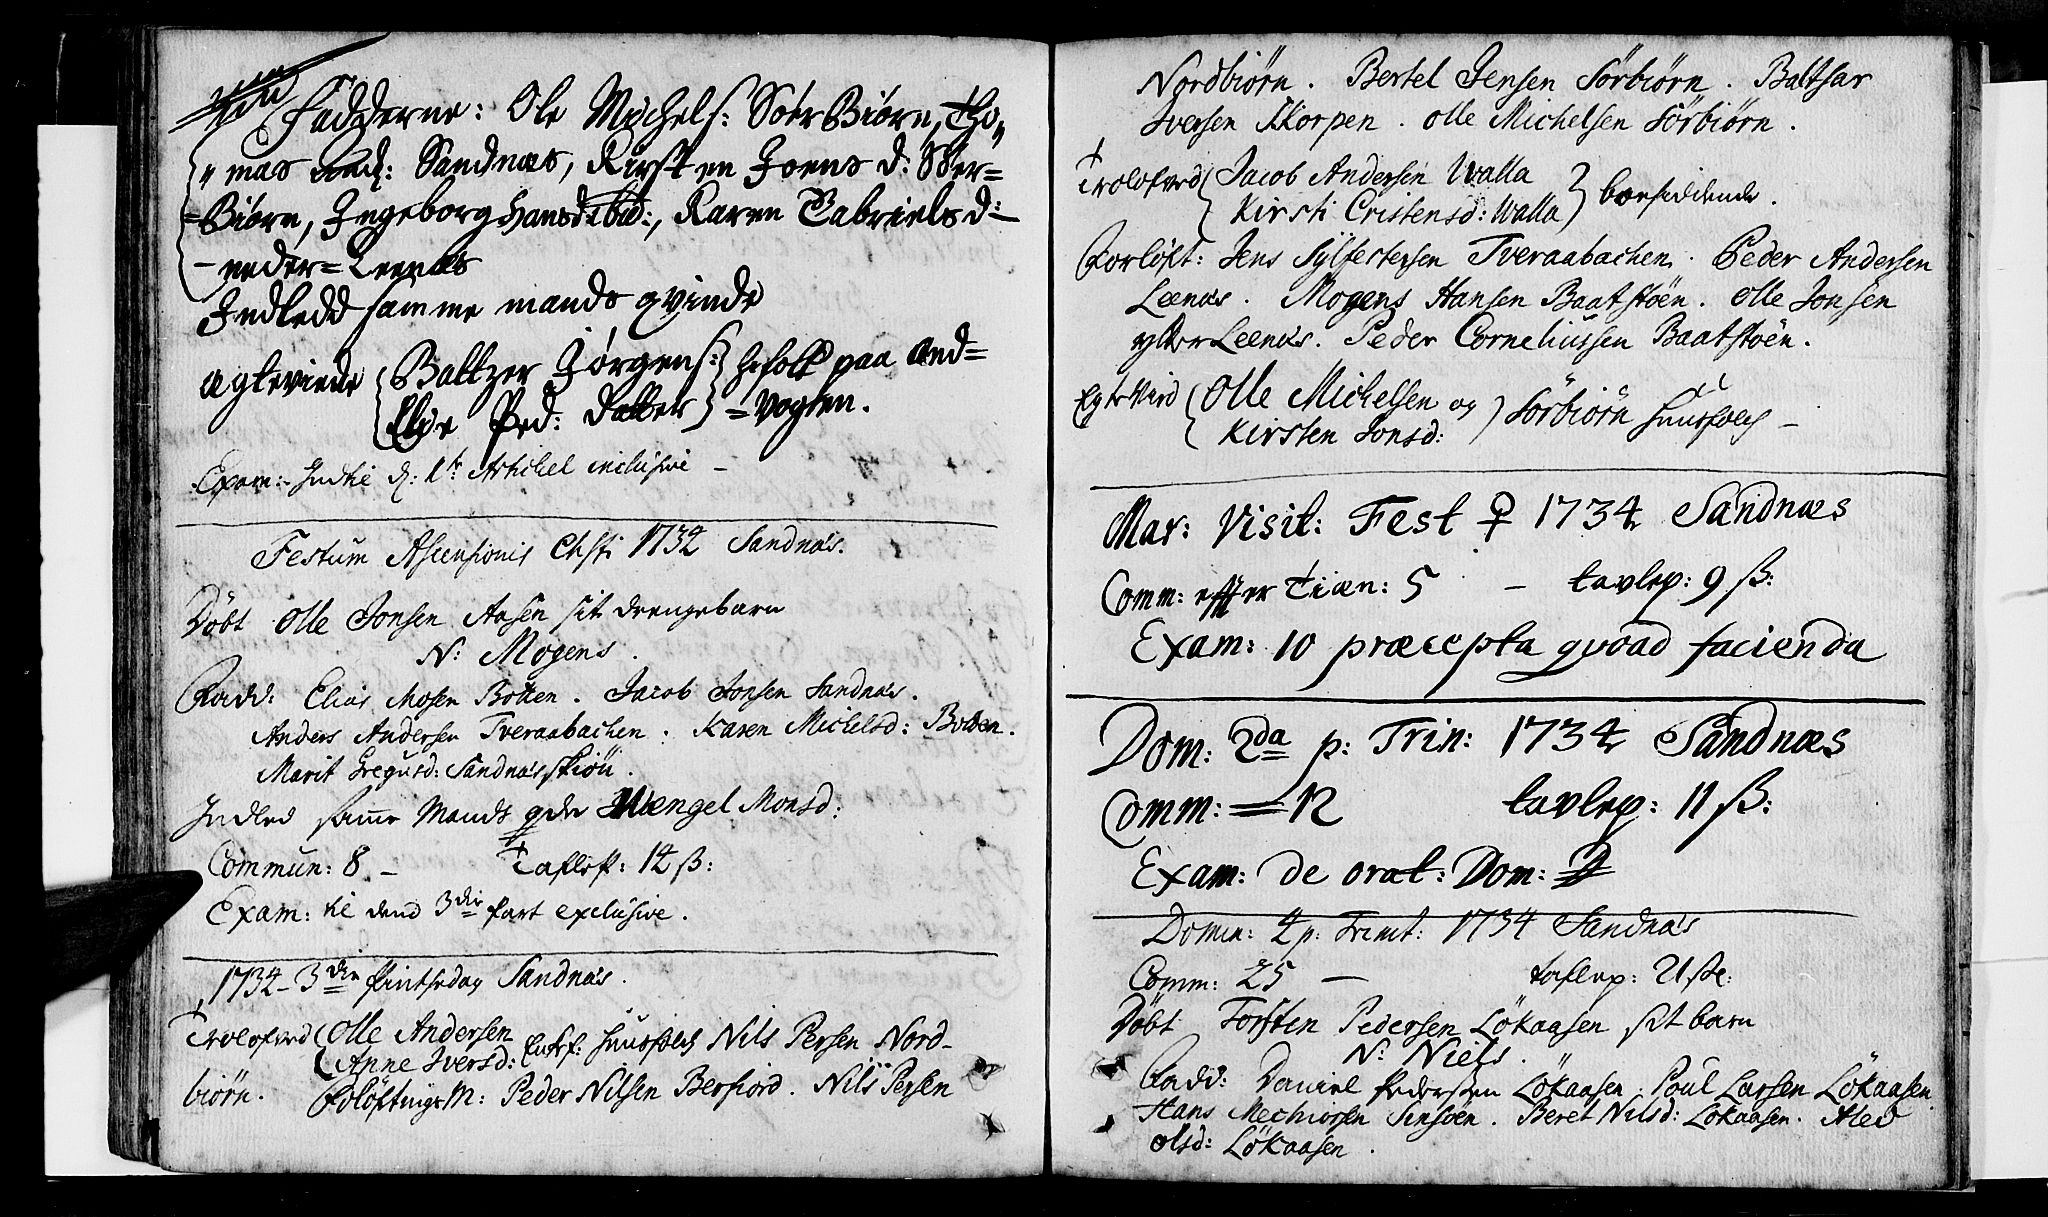 Fadderne: Ole Michels: Soer Biørn, Tho„
„mas And: Sandnæs, Kirsten Joens d: Søer=
=Biørn, Ingeborg Hansd:, Karen Gabriels d:
neder=Leenæs
Indledd samme mands qvinde
Ægteviede Baltzer Jørgens: hosfolk paa Und=
Else Ped: Datter =vogten.
Exam: Indtil d: 1te Artickel inclusive –
Festum Ascensionis Chsti 1734 Sandnæs.
Döbt Olle Jonsen Aasen sit drengebarn
N: Mogens.
Fadd: Elias Mosen Botten. Jacob Jonsen Sandnæs.
Anders Andersen Tveraabachen. Karen Michelsd: Botten.
Marit Gregusd: Sandnæsskiön.
Indled samme Mands qde Wengel Monsd:
Commun: 8 – Taflep: 14 ß:
Exam: til dend 3die Part exclusive.
1734 – 3die Pintsedag Sandnæs.
Trolofved Olle Andersen
Anne Iversd: Huusfolch Nils Persen Nord-
biörn. Folöftnings M: Peder Nilsen Berfiord. Nils Persen
Nordbiörn. Bertel Jensen Sörbiörn. Baltsar
Iversen Skorpen. Olle Michelsen Sörbiörn.
Trolofved Jacob Andersen Walla
Kirsti Cristensd: Walla boesiddende.
Forlöft: Jens Sylfestersen Tveraabachen. Peder Andersen
Leenæs. Mogens Hansen Baatstöen. Olle Jonsen
ytter Leenæs. Peder Corneliussen Baatstöen.
EgteVied Olle Michelsen og
Kirsten Jonsd: Sörbiörn Huusfolch –
Mar: Visit: Fest ♀ 1734 Sandnæs
Comm: effter Tiæn: 5 – tavlep: 9 ß:
Exam: 10 præcepta qvoad facienda
Dom: 2da p: Trin: 1734 Sandnæs
Comm: = 12 tavlep: 11 ß:
Exam: de orat: Dom:
Domin: 4 p: Trinit: 1734 Sandnæs
Comm: 25 – taflep: 21 ße:
Döbt Torsten Pedersen Lökaasen sit barn
N: Niels.
Fadd: Daniel Pedersen Lökaasen. Poul Larsen Lökaasen.
Hans Mechiorsen Finsöen. Beret Nilsd: Lökaasen. Aled
Olsd: Lökaasen.